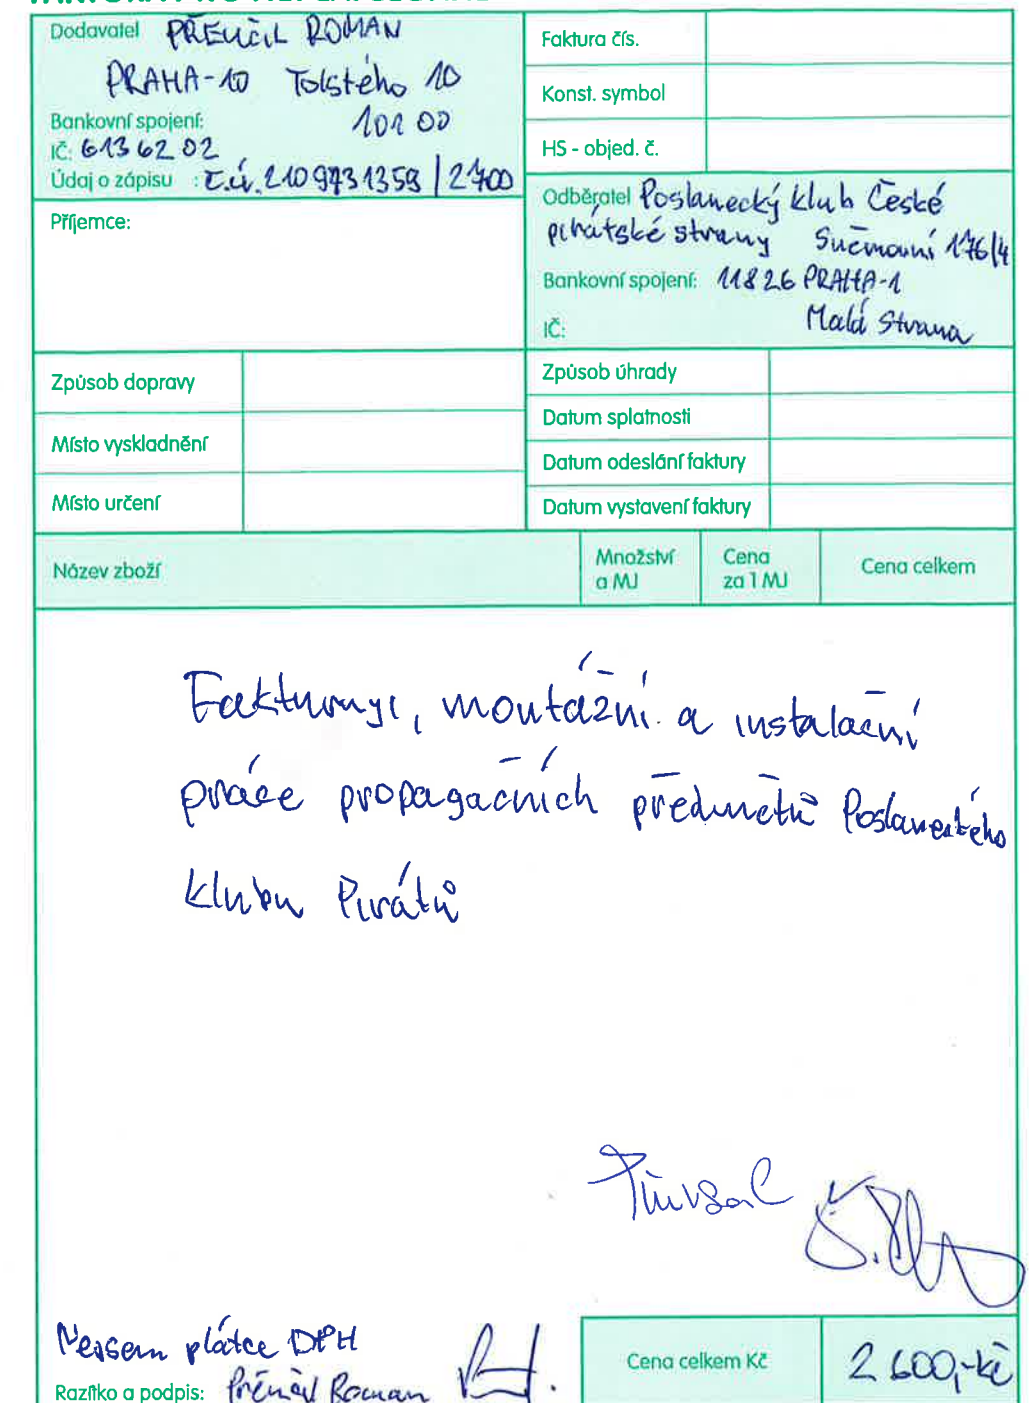 Dodavatel PŘEUČIL ROMAN
PRAHA-10 Tolstého 10
101 00
Bankovní spojení:
IČ: 6136202
Údaj o zápisu : č.ú. 2109731359/2700
Faktura čís.
Konst. symbol
HS - objed. č.
Příjemce:
Odběratel Poslanecký klub České
pirátské strany Sněmovní 176/4
Bankovní spojení: 11826 PRAHA-1
Malá Strana
IČ:
Způsob dopravy
Místo vyskladnění
Místo určení
Způsob úhrady
Datum splatnosti
Datum odeslání faktury
Datum vystavení faktury
Název zboží
Množství
a MJ
Cena
za 1 MJ
Cena celkem
Fakturuji, montážní a instalační
práce propagačních předmětů Poslaneckého
klubu Pirátů
Nejsem plátce DPH
Razítko a podpis: Přeučil Roman
Cena celkem Kč
2 600,-kč